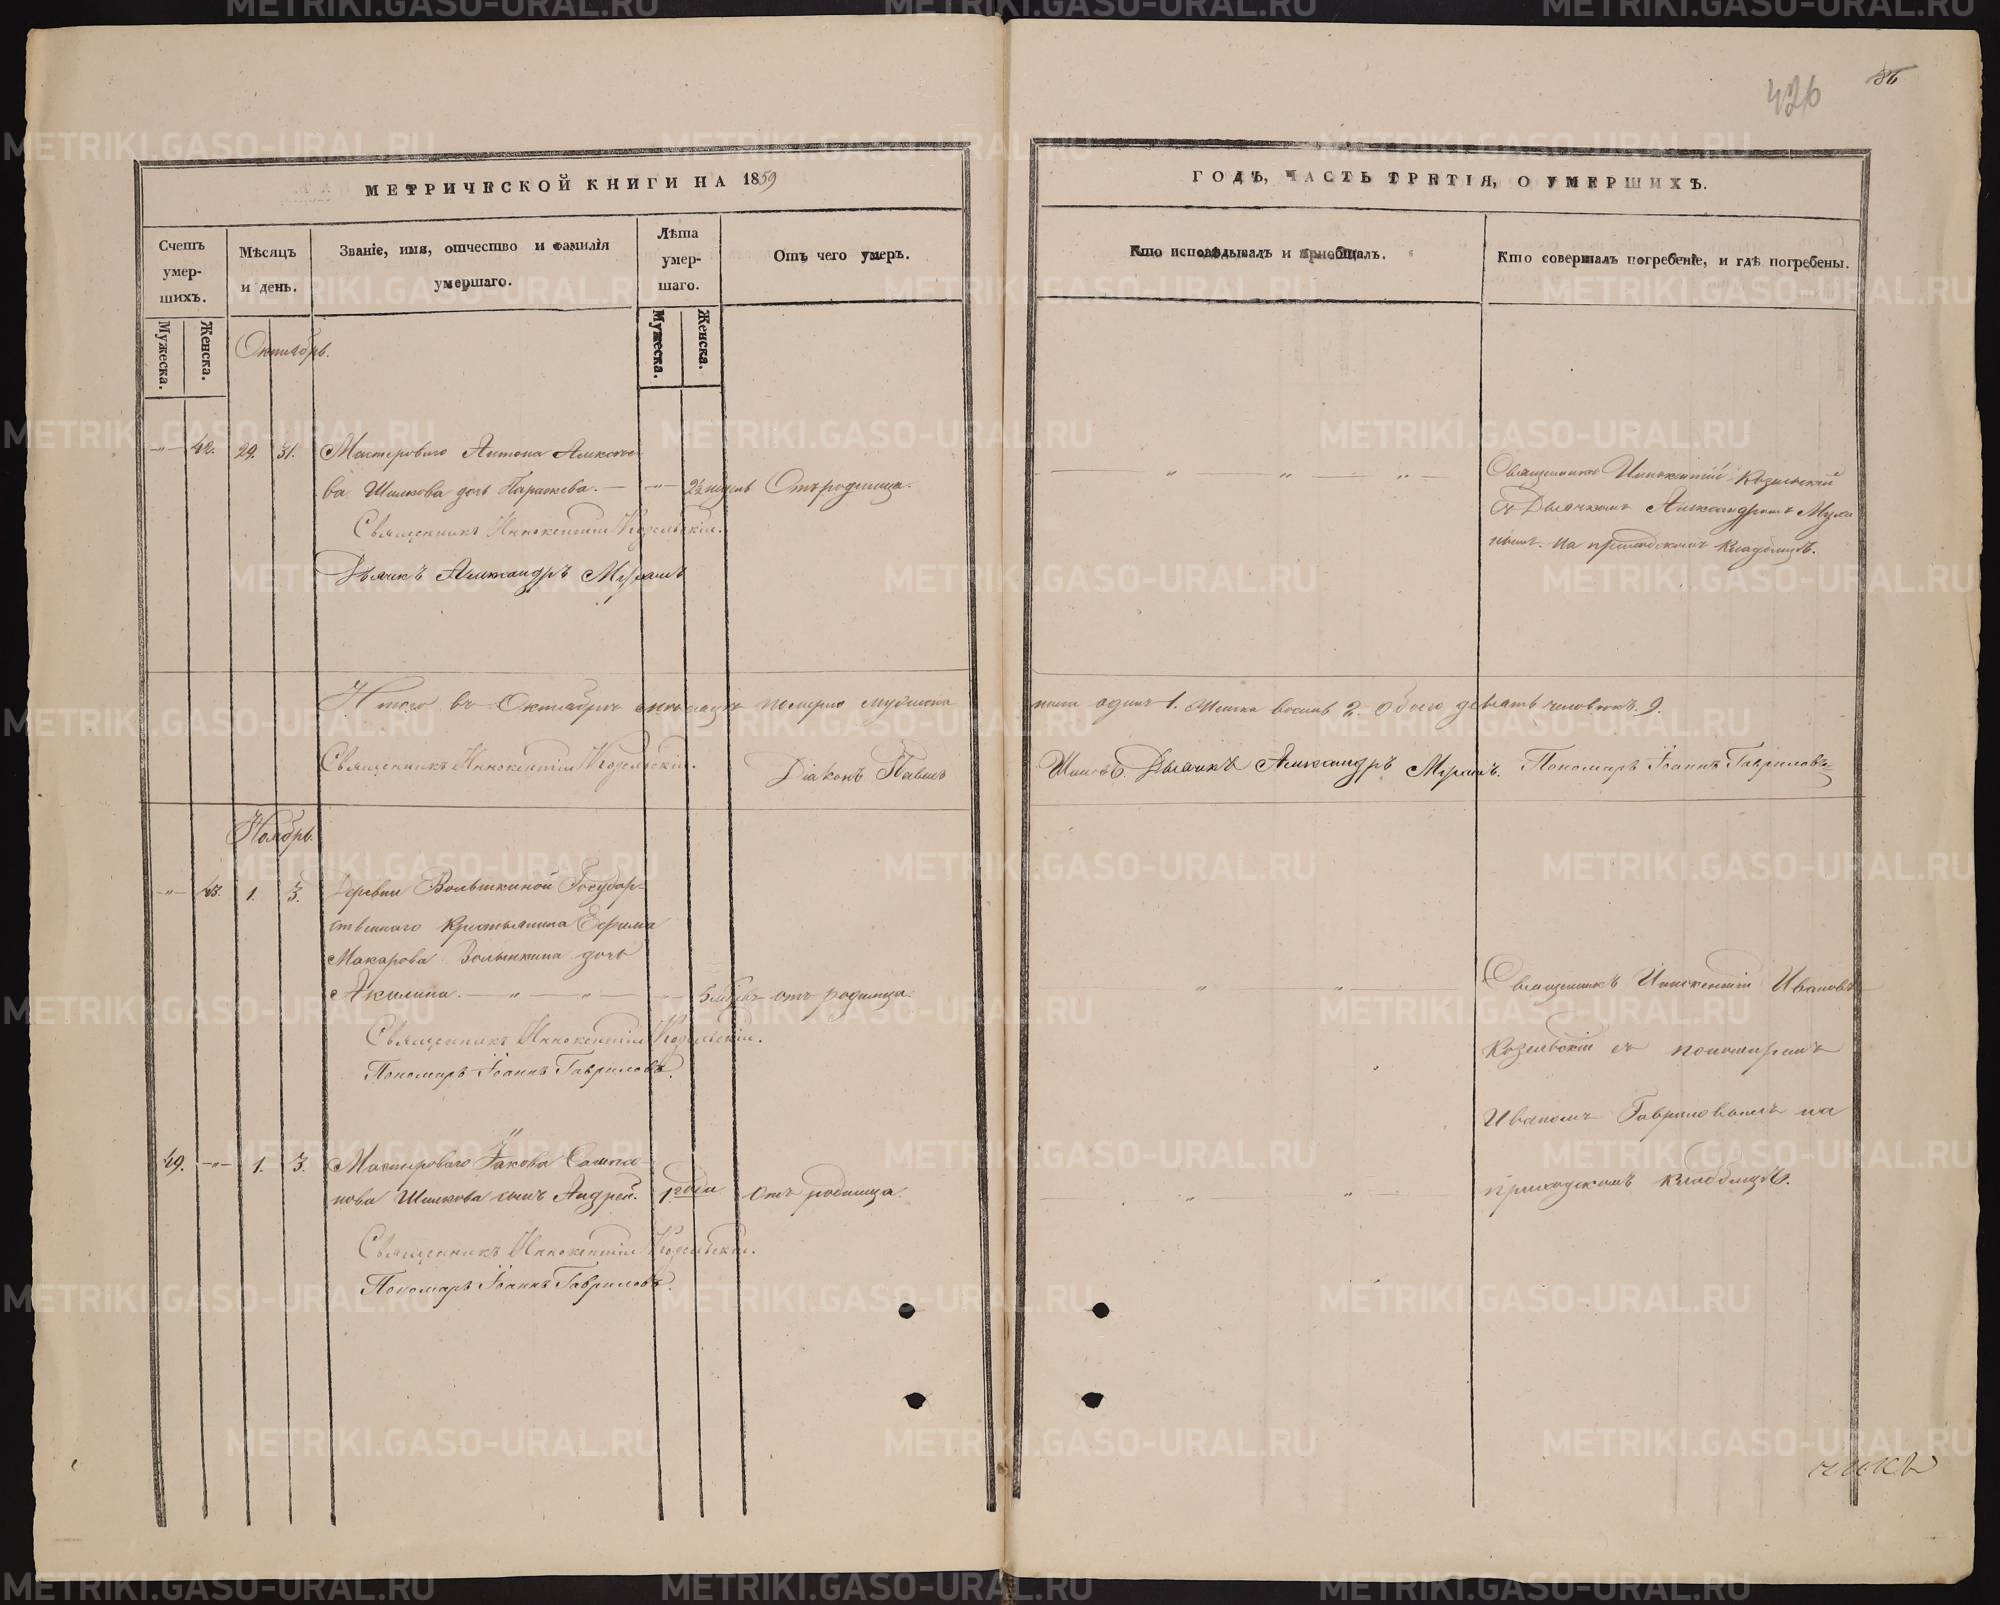 426
МЕТРИЧЕСКОЙ КНИГИ НА 1859
ГОДЪ, ЧАСТЬ ТРЕТІЯ, О УМЕРШИХЪ.
Счетъ умер-шихъ.
Мѣсяцъ и день.
Званіе, имя, отчество и фамилія умершаго.
Лѣта умер-шаго.
Отъ чего умеръ.
Кто исповѣдывалъ и пріобщалъ.
Кто совершалъ погребеніе, и гдѣ погребены.
Мужеска.
Женска.
Мужеска.
Женска.
Октябрь.
42. 29. 31. Мастероваго Антона Алексѣе-
ва Шилкова дочь Параскева. 2½ недѣль Отъ родимца.
Священникъ Иннокентій Козельскій
съ Дьячкомъ Александромъ
на приходскомъ кладбищѣ.
Священникъ Иннокентій Козельскій.
Дьячекъ Александръ
Итого въ Октябрѣ мѣсяцѣ померло мужеска
пола одинъ 1. Женска восемь обоего девять человѣкъ. 9.
Священникъ Иннокентій Козельскій.
Діаконъ Павелъ
Дьячекъ Александръ
Пономарь Іоаннъ Гавриловъ
Ноябрь.
43. 1. 3. Деревни Волышкиной Государ-
ственнаго крестьянина Ефима
Макарова Волышкина дочь
Акилина. отъ родимца
Священникъ Иннокентій Ивановъ
Козельскій съ пономаремъ
Иваномъ Гавриловымъ на
приходскомъ кладбищѣ.
Священникъ Иннокентій Козельскій.
Пономарь Іоаннъ Гавриловъ.
49. 1. 3. Мастероваго Іакова
Шилкова сынъ Андрей. 1 года отъ родимца.
Священникъ Иннокентій Козельскій.
Пономарь Іоаннъ Гавриловъ.
METRIKI.GASO-URAL.RU